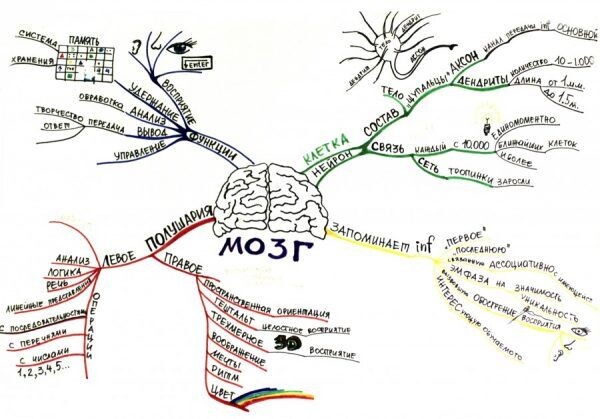 СИСТЕМА
ХРАНЕНИЯ
ПАМЯТЬ
ENTER
ВОСПРИЯТИЕ
УДЕРЖАНИЕ
АНАЛИЗ
ОБРАБОТКА
ВЫВОД
ПЕРЕДАЧА
ТВОРЧЕСТВО
ОТВЕТ
УПРАВЛЕНИЕ
ФУНКЦИИ
ТЕЛО
ДЕНДРИТ
АКСОН
КЛЕТКА
НЕЙРОН
СОСТАВ
ТЕЛО
"ЩУПАЛЬЦЫ"
АКСОН
КАНАЛ ПЕРЕДАЧИ inf ОСНОВНОЙ
ДЕНДРИТЫ
КОЛИЧЕСТВО 10-1.000
ДЛИНА ОТ 1 мм.
ДО 1,5 м.
СВЯЗЬ
КАЖДЫЙ С 10.000
ЕДИНОМОМЕНТНО
БЛИЖАЙШИХ КЛЕТОК
И БОЛЕЕ
СЕТЬ ТРОПИНКИ ЗАРОСЛИ
МОЗГ
ПОЛУШАРИЯ
ЛЕВОЕ
АНАЛИЗ
ЛОГИКА
РЕЧЬ
ЛИНЕЙНЫЕ ПРЕДСТАВЛЕНИЯ
ОПЕРАЦИИ
С ПОСЛЕДОВАТЕЛЬНОСТЯМИ
С ПЕРЕЧНЯМИ
С ЧИСЛАМИ
1, 2, 3, 4, 5...
ПРАВОЕ
ПРОСТРАНСТВЕННАЯ ОРИЕНТАЦИЯ
ГЕШТАЛЬТ
ЦЕЛОСТНОЕ ВОСПРИЯТИЕ
ТРЕХМЕРНОЕ
3D
ВОСПРИЯТИЕ
ВООБРАЖЕНИЕ
МЕЧТЫ
РИТМ
ЦВЕТ
ЗАПОМИНАЕТ inf
"ПЕРВОЕ"
"ПОСЛЕДНЮЮ"
АССОЦИАТИВНО
ЭМФАЗА НА ЗНАЧИМОСТЬ
УНИКАЛЬНОСТЬ
ОБОСТРЕНИЕ ВОСПРИЯТИЯ
ИНТЕРЕСУЮЩУЮ ОБУЧАЕМОГО